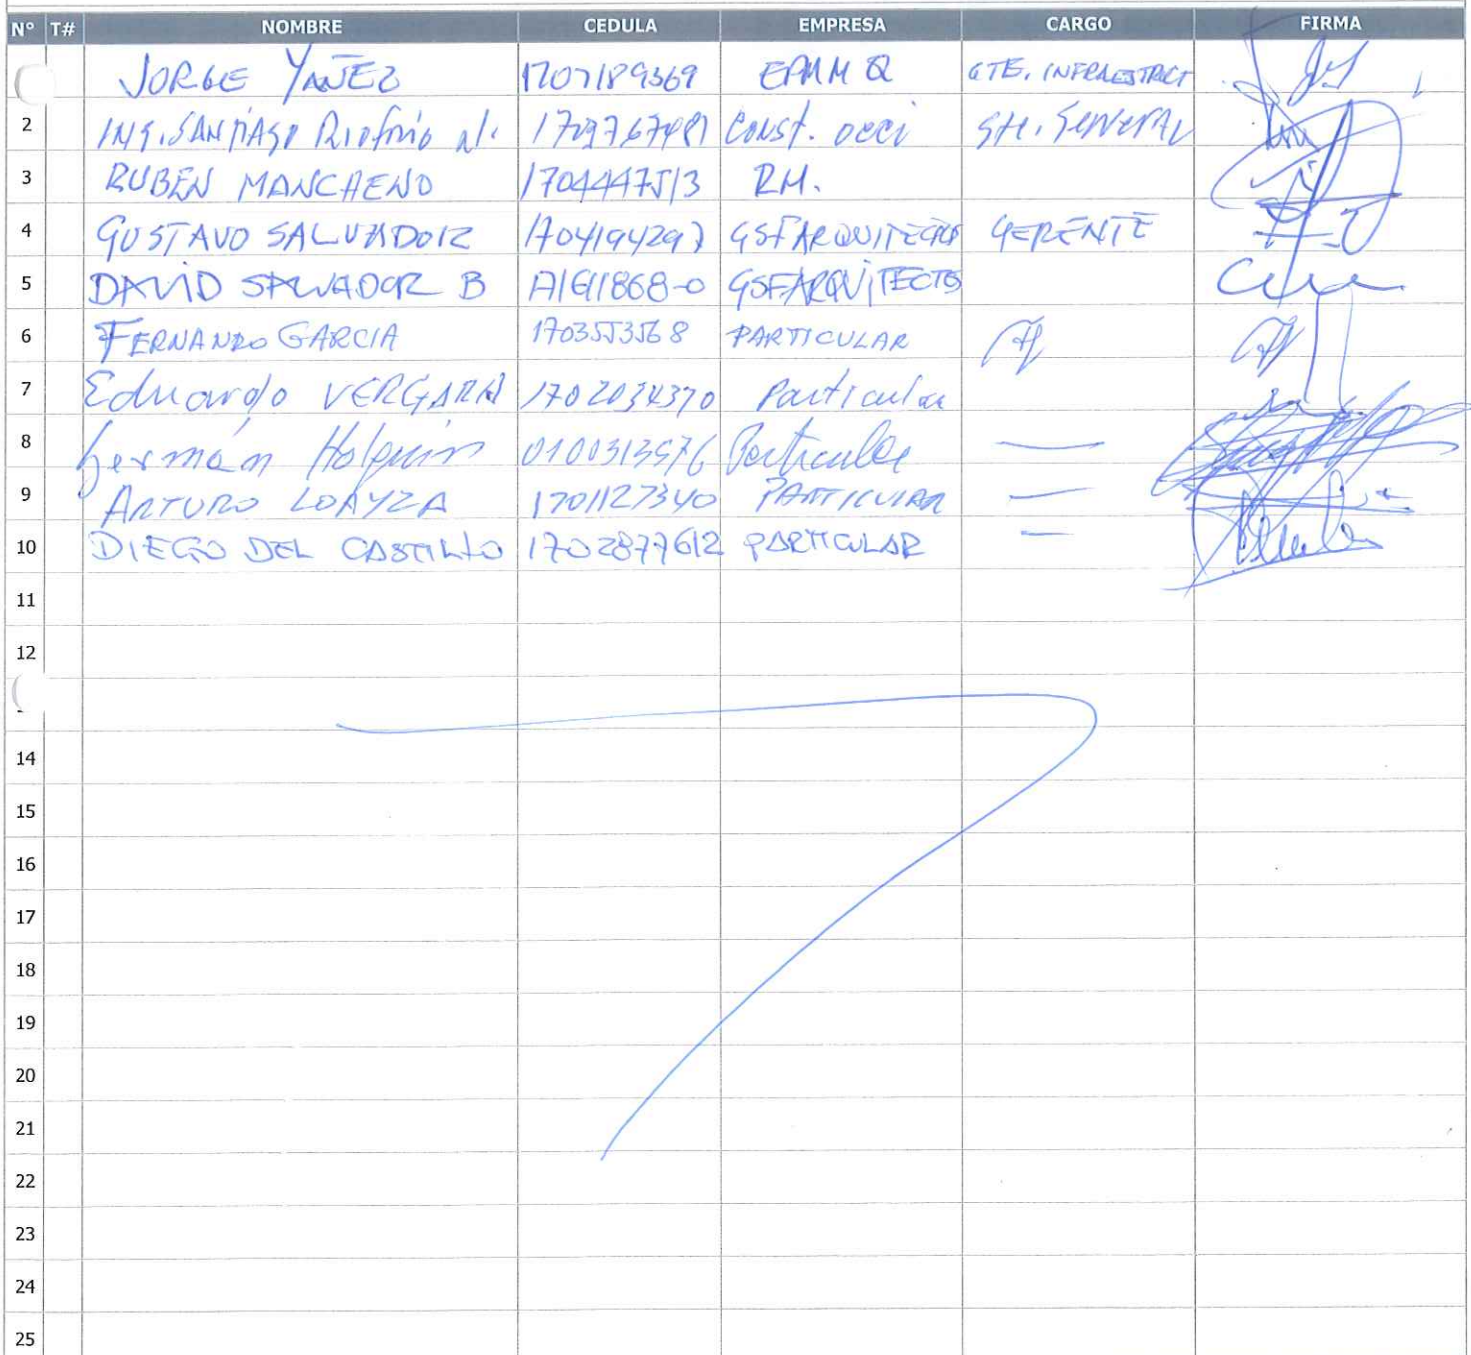 N° T# NOMBRE CEDULA EMPRESA CARGO FIRMA
JORGE YAÑEZ 1707189369 EPMMQ GTE. INFRAESTRUCT
2 ING. SANTIAGO Riofrío Const. occi Gte. General
3 RUBEN MANCHENO 1704447513 RM.
4 GUSTAVO SALVADOR 1704194297 GSFARQUITECTOS GERENTE
5 DAVID SALVADOR B GSFARQUITECTOS
6 FERNANDO GARCIA 1703553568 PARTICULAR
7 Eduardo VERGARA 1702034370 Particular
8 Germán Holguín Particular —
9 ARTURO LOAYZA 1701127340 PARTICULAR —
10 DIEGO DEL CASTILLO 1702877612 PARTICULAR —
11
12
14
15
16
17
18
19
20
21
22
23
24
25